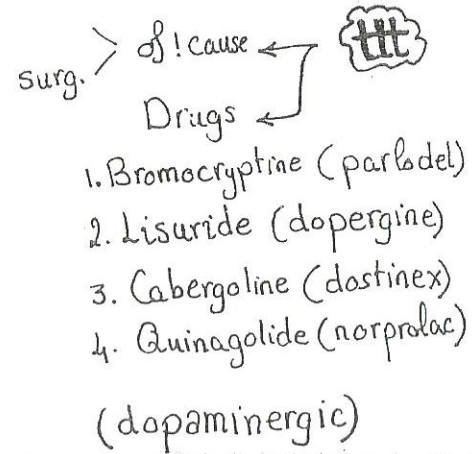 ttt
surg. > of ! cause
Drugs
1. Bromocryptine (parlodel)
2. Lisuride (dopergine)
3. Cabergoline (dostinex)
4. Quinagolide (norprolac)
(dopaminergic)